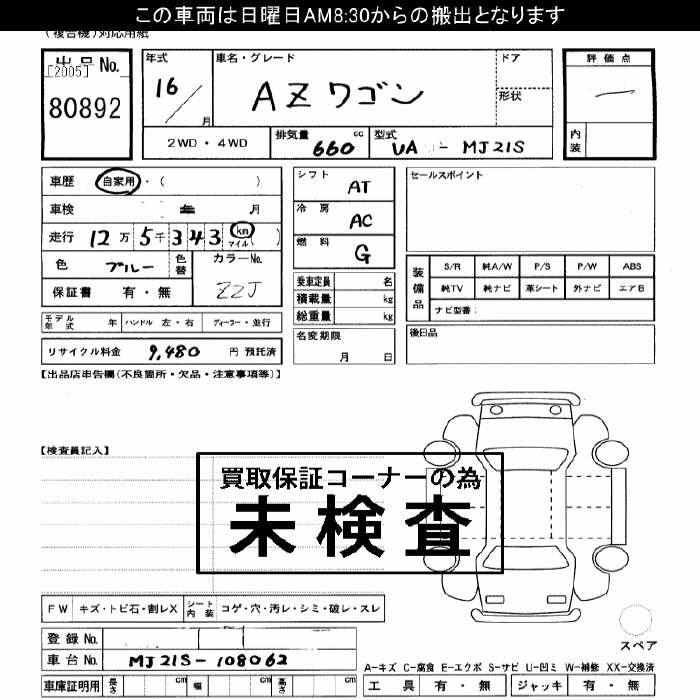 この車両は日曜日AM8:30からの搬出となります
(複合機)対応用紙
出品No.
[2005]
80892
年式
16/
月
車名・グレード
AZワゴン
ドア
形状
評価点
—
内装
2WD・4WD
排気量 660 cc
型式 UA - MJ21S
車歴 自家用・( )
車検 年 月
走行 12万5千343 km マイル ( )
色 ブルー
色替
カラーNo.
ZZJ
保証書 有・無
モデル年式 年
ハンドル 左・右
ディーラー・並行
リサイクル料金 9,480 円 預託済
シフト AT
冷房 AC
燃料 G
乗車定員 名
積載量 kg
総重量 kg
名変期限
月 日
セールスポイント
装備品
S/R 純A/W P/S P/W ABS
純TV 純ナビ 革シート 外ナビ エアB
ナビ型番:
後日品
【出品店申告欄(不良箇所・欠品・注意事項等)】
【検査員記入】
買取保証コーナーの為
未検査
FW キズ・トビ石・割レX
シート内装 コゲ・穴・汚レ・シミ・破レ・スレ
登録No.
車台No. MJ21S-108062
車庫証明用 長さ cm 幅 cm 高さ cm
スペア
A-キズ C-腐食 E-エクボ S-サビ U-凹ミ W-補修 XX-交換済
工具 有・無 ジャッキ 有・無